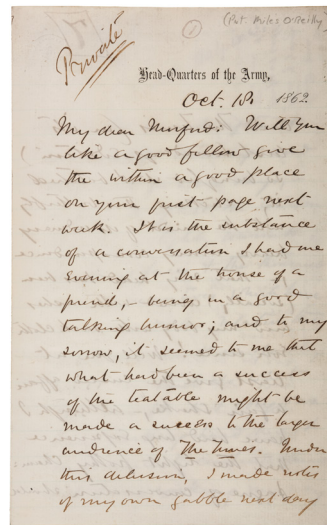 (Pvt. Miles O'Reilly)
①
Private
Head-Quarters of the Army,
Oct. 18, 1862.
My dear Munford: Will you
like a good fellow give
the within a good place
on your first page next
week. It is the substance
of a conversation I had one
evening at the house of a
friend, – being in a good
talking humor; and to my
sorrow, it seemed to me that
what had been a success
of the teatable might be
made a success to the larger
audience of The Times. Under
this delusion, I made notes
of my own gabble next day